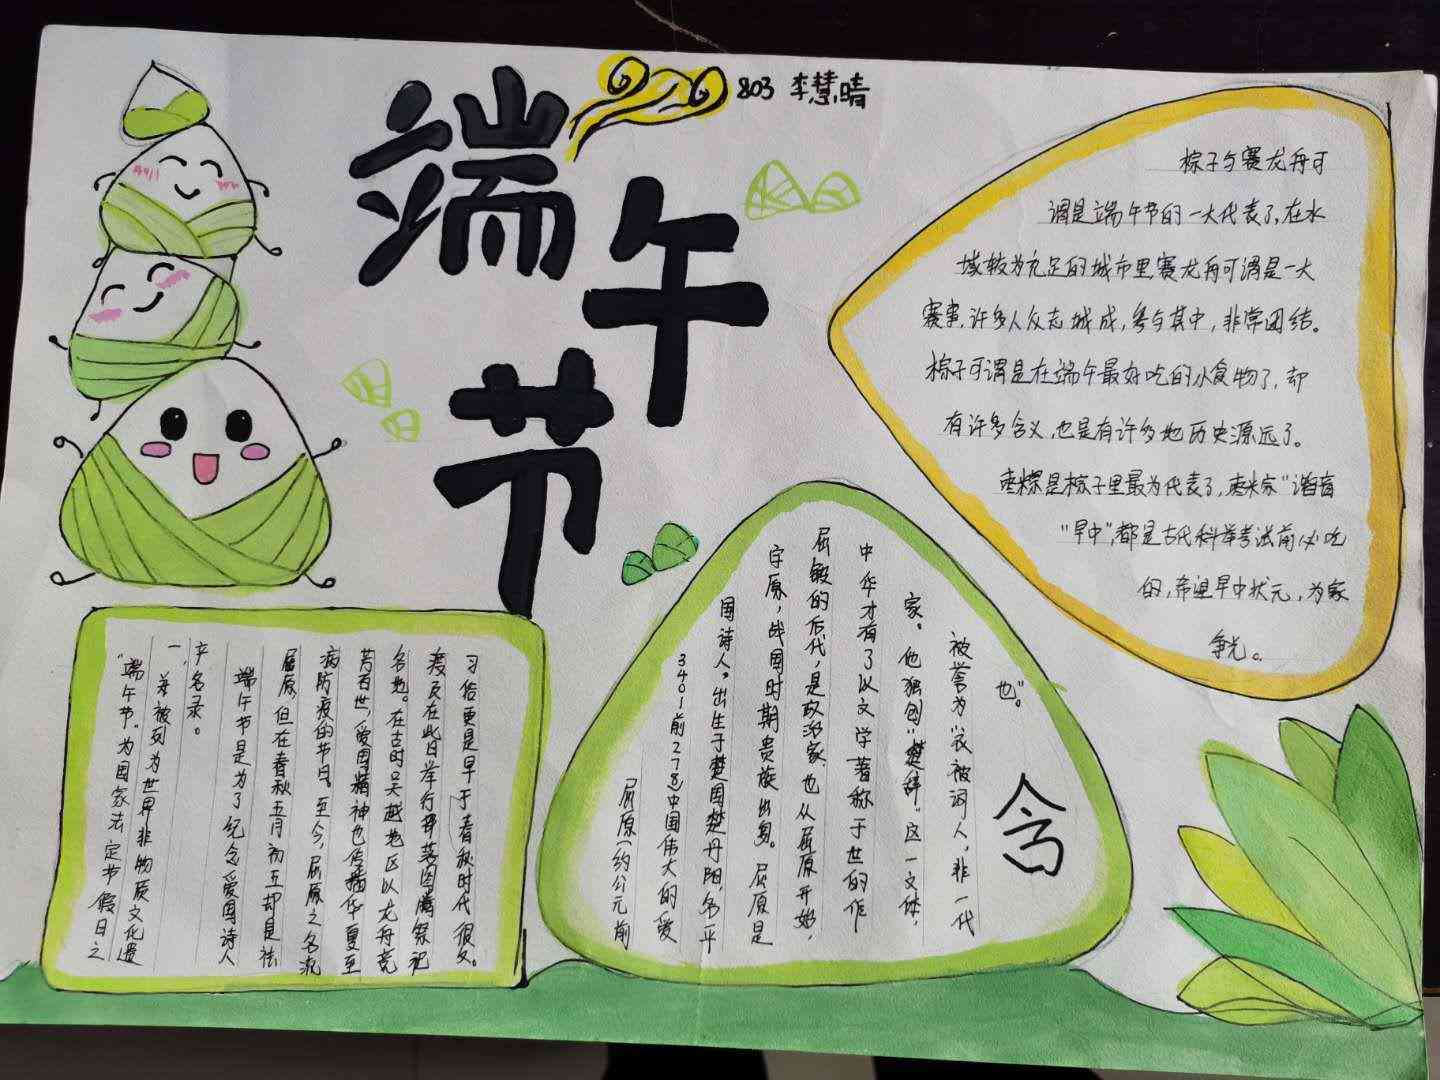 端午节
803 李慧晴
粽子与赛龙舟可
谓是端午节的一大代表了,在水
域较为充足的城市里赛龙舟可谓是一大
赛事,许多人众志城成,参与其中,非常团结。
粽子可谓是在端午最好吃的小食物了,却
有许多含义,也是有许多地历史源远了。
枣粽是粽子里最为代表了,枣粽“谐音
“早中”,都是古代科举考试前必吃
的,希望早中状元,为家
争光。
“端午节”为国家法定节假日之
一,并被列为世界非物质文化遗
产名录。
端午节是为了纪念爱国诗人
屈原,但在春秋五月初五却是祛
病防疫的节日。至今,屈原之名流
芳百世,爱国精神也传播华夏至
各地。在古时吴越地区以龙舟竞
渡及在此日举行部落图腾祭祀
习俗更是早于春秋时代很久。
屈原(约公元前
340-前278)中国伟大的爱
国诗人。出生于楚国楚丹阳,名平
字原,战国时期贵族出身。屈原是
屈瑕的后代,是政治家,也从屈原开始,
中华才有了以文学著称于世的作
家。他独创“楚辞”这一文体,
被誉为“衣被词人,非一代
也”。
含